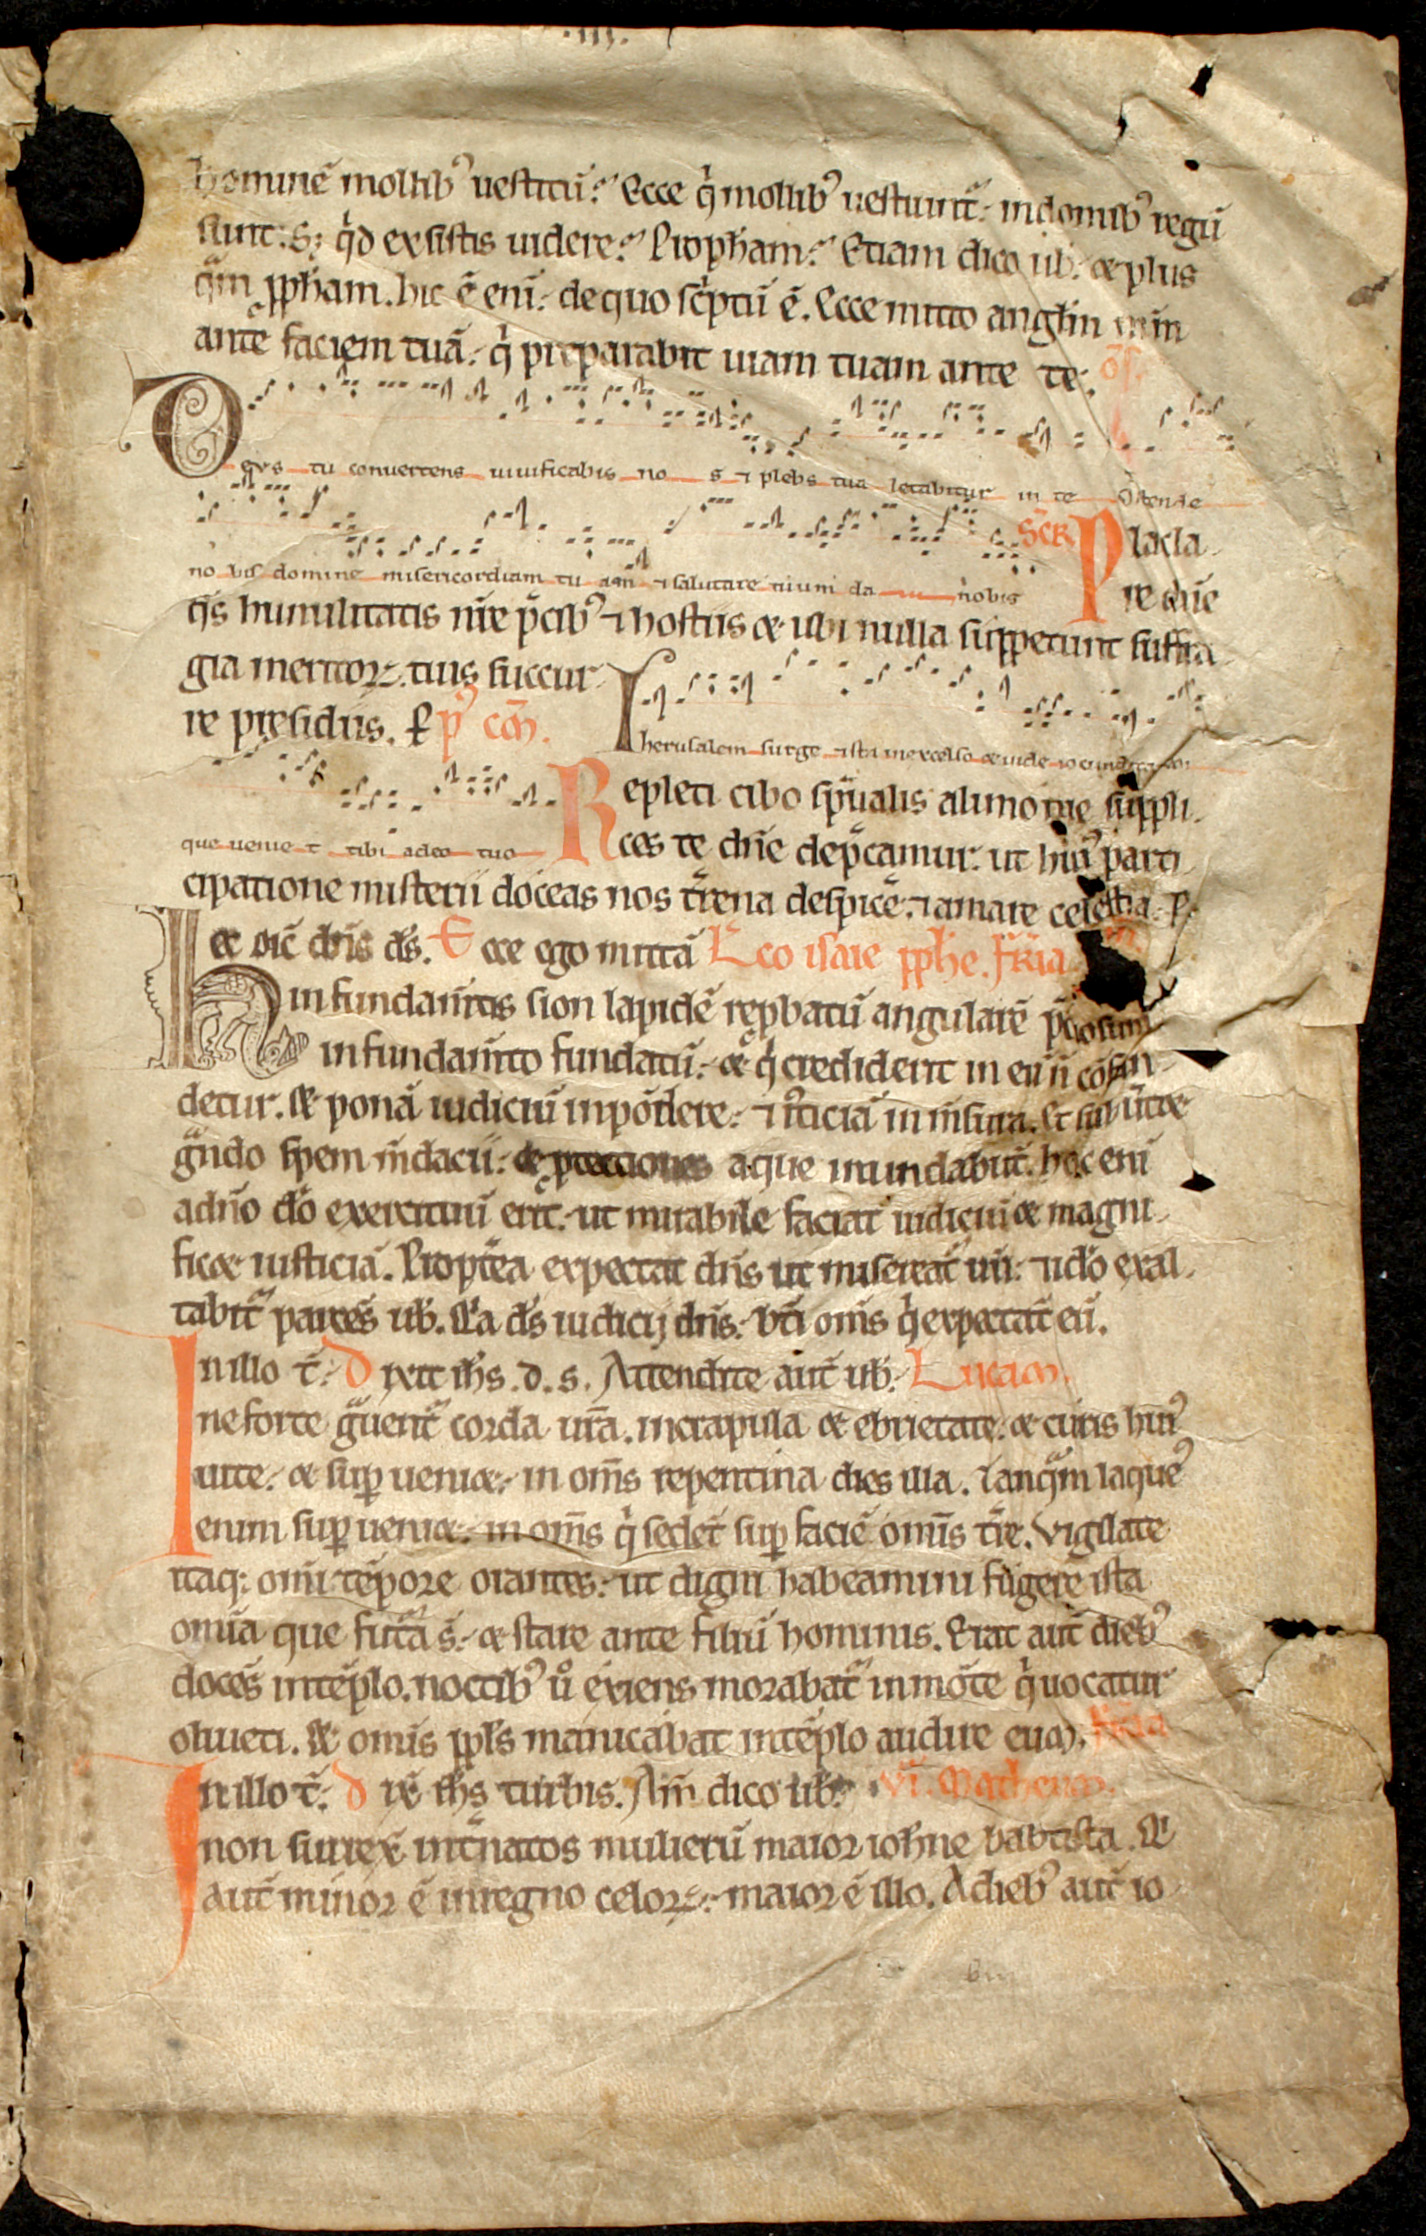 .III.
hominē mollib⁹ uestitū? Ecce q̇ mollib⁹ uestiunt᷑. in domib⁹ regū
sunt. S; q̇d existis uidere? Propham? Etiam dico ub̄. & plus
q̄m ꝓpham. hic ē eni. de quo sċptū ē. Ecce mitto angl̄m mm̄
ante faciem tuā. q̇ preparabit uiam tuam ante te. of.
Deus tu conuertens uiuificabis no s ⁊ plebs tua letabitur in te Ostende
no bis domine misericordiam tu am ⁊ salutare tuum da nobis SCR Placa
re dn̄e
q̄s humilitatis nr̄e p̄cib⁹ ⁊ hostiis & ubi nulla suppetunt suffra
gia meritoꝝ. tuis succur
re presidiis. P p⁹ com̄.
Iherusalem surge ⁊ sta in excelso & uide iocunditatem
que venie t tibi a deo tuo
Repleti cibo sp̄ualis alimonie suppli
ces te dn̄e dep̄camur. ut hui⁹ parti
cipatione misterii doceas nos tr̄ena despice᷑. ⁊ amare celestia. P.
Hec dic̄ dn̄s ds̄. Ecce ego mittā Leo isaie ꝓphe. fr̄ia
in fundam̄tis sion lapidē reꝓbatū angularē p̄ciosum
in fundam̄to fundatū. & q̇ crediderit in eū n̄ cōfun
detur. & ponā iudiciū in pōdere. ⁊ iusticiā in m̄sura. Et
g̃ndo spem m̄dacii. & aque inundabunt᷑. hoc eni
a dn̄o dō exercituū erit. ut mirabile faciat iudiciū & magni
fic& iusticiā. Propt᷑ea expectat dn̄s ut misereat᷑ ur̄i. ⁊ idō exal
tabit᷑ parcēs ub̄. Q̇a ds̄ iudicij dn̄s. bt̄i oms̄ q̇ expectāt eū.
In illo t̄. Dixit ih̄s .d. s. Attendite aut̄ ub̄. Lucam.
ne forte g̃uent᷑ corda ur̄a. in crapula & ebrietate. & curis hui⁹
uite. & suꝑ ueni&. in om̄s repentina dies illa. Tanq̄m laque⁹
enim suꝑ ueni&. in om̄s q̇ sedēt suꝑ faciē omīs tr̄e. Vigilate
itaq; omī tēpore orantes. ut digni habeamini fugere ista
om̄ia que fut᷑a s̄. & stare ante filiū hominis. Erat aut̄ dieb⁹
docēs in tēplo. noctib⁹ ů exiens morabat᷑ in mōte q̇ uocatur
oliueti. & omīs ꝓpl̄s manicabat in tēplo audire eum. fr̄ia
In illo t̄. Dix̄ ih̄s turbis. Am̄ dico ub̄. VI. Matheum.
non surrex̄ int᷑ natos mulierū maior ioh̄ne babtista. Q̇
aut̄ minor ē in regno celoꝝ. maior ē illo. A dieb⁹ aut̄ io